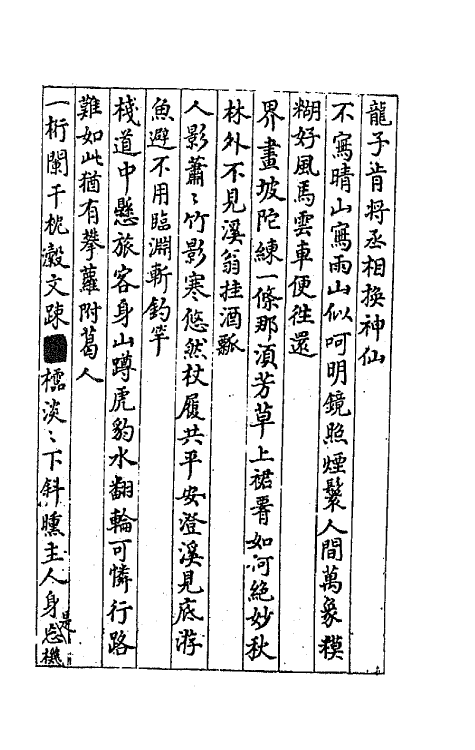 龍子肯將丞相換神仙
不寫晴山寫雨山似呵明鏡照煙鬟人間萬象糢
糊好風馬雲車便往還
界畫坡陀練一條那須芳草上裙腰如何絕妙秋
林外不見溪翁挂酒瓢
人影蕭〻竹影寒悠然杖履共平安澄溪見底游
魚避不用臨淵斬釣竿
棧道中懸旅客身山蹲虎豹水翻輪可憐行路
難如此猶有攀蘿附葛人
一桁闌干枕瀔文疎櫺淡〻下斜曛主人身是忘機